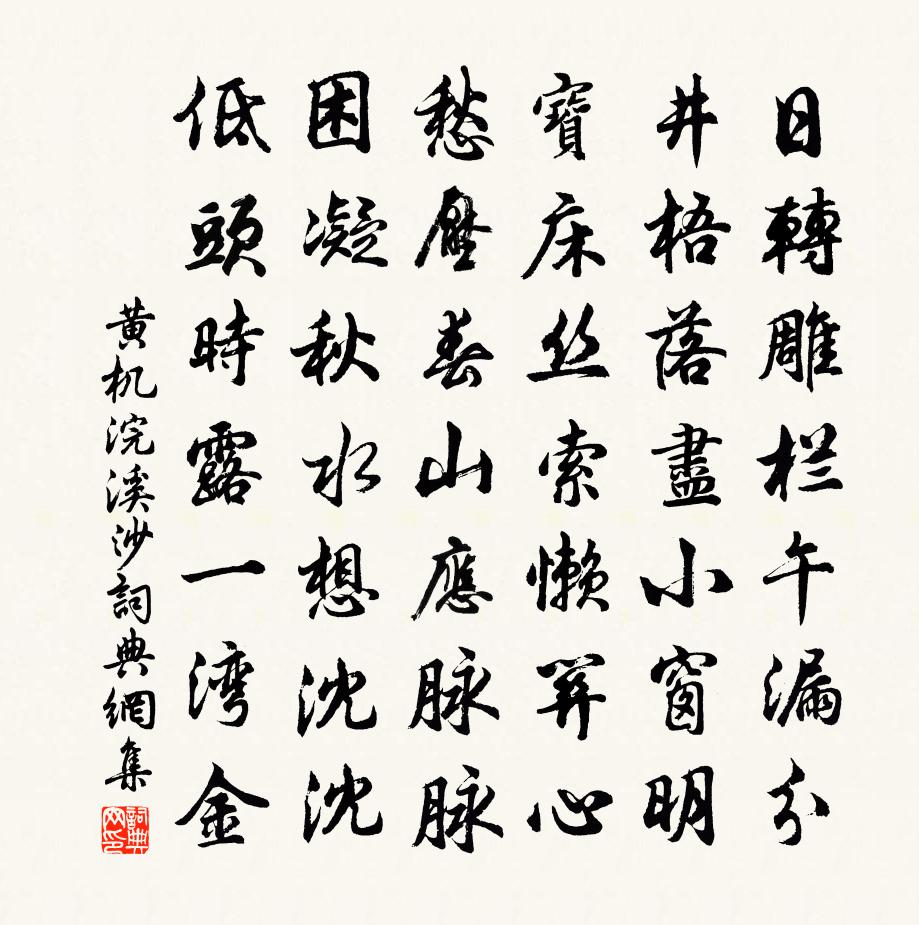 日轉雕栏午漏分
井梧落盡小窗明
寶床丝索懒關心
愁壓春山應脉脉
困凝秋水想沈沈
低頭時露一湾金
黄机浣溪沙詞典網集
詞典网印